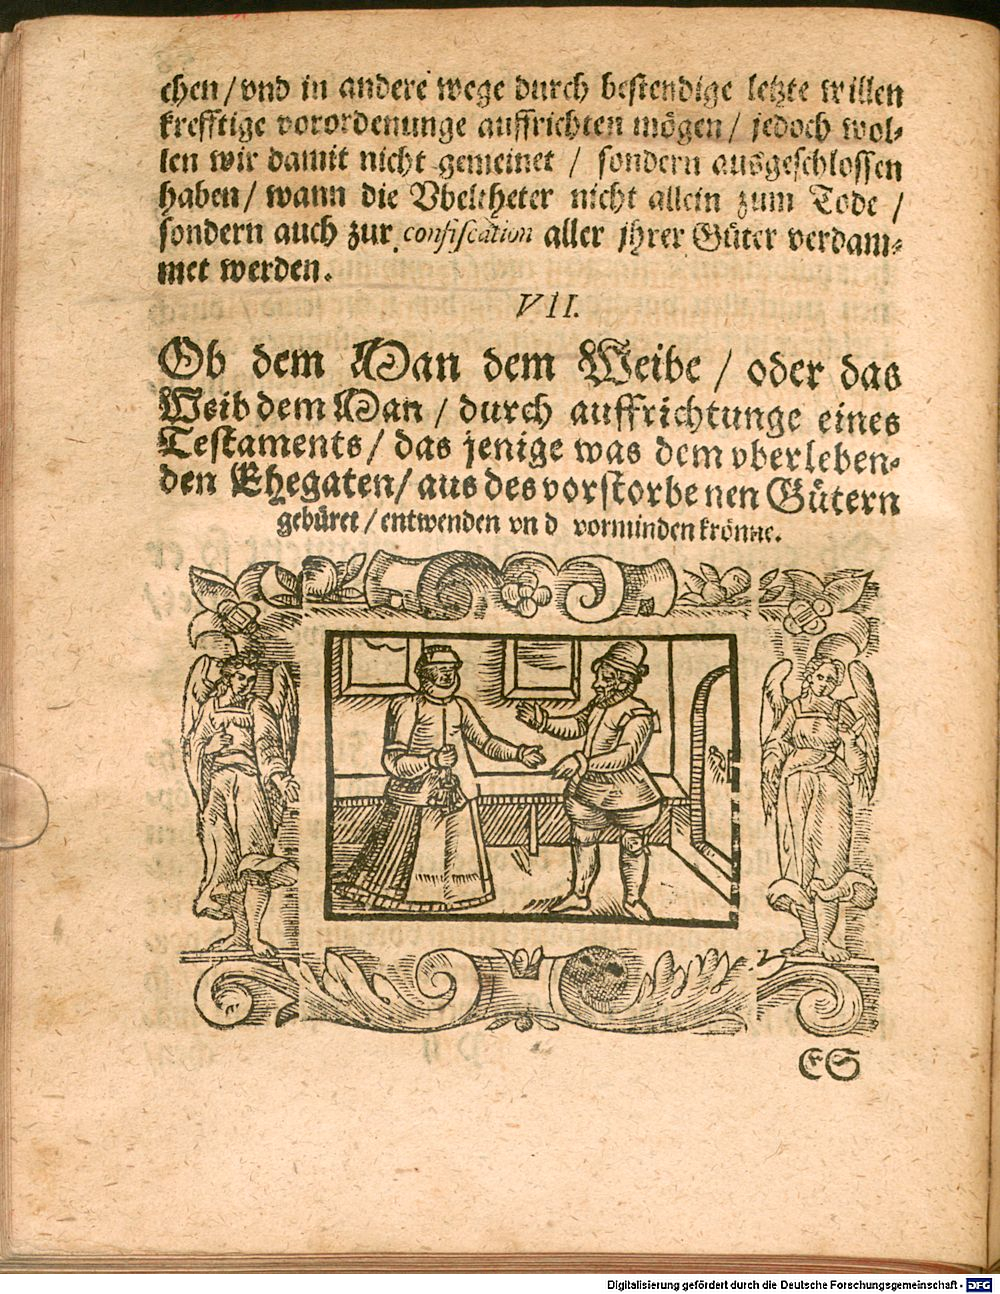 chen / vnd in andere wege durch bestendige letzte willen
krefftige vorordenunge auffrichten mögen / jedoch wol-
len wir damit nicht gemeinet / sondern ausgeschlossen
haben / wann die Vbeltheter nicht allein zum Tode /
sondern auch zur confiscation aller jhrer Güter verdam-
met werden.
VII.
Ob dem Man dem Weibe / oder das
Weib dem Man / durch auffrichtunge eines
Testaments / das jenige was dem vberleben-
den Ehegaten / aus des vorstorbenen Gütern
gebüret / entwenden vnd vorminden krönne.
ES
Digitalisierung gefördert durch die Deutsche Forschungsgemeinschaft - DFG